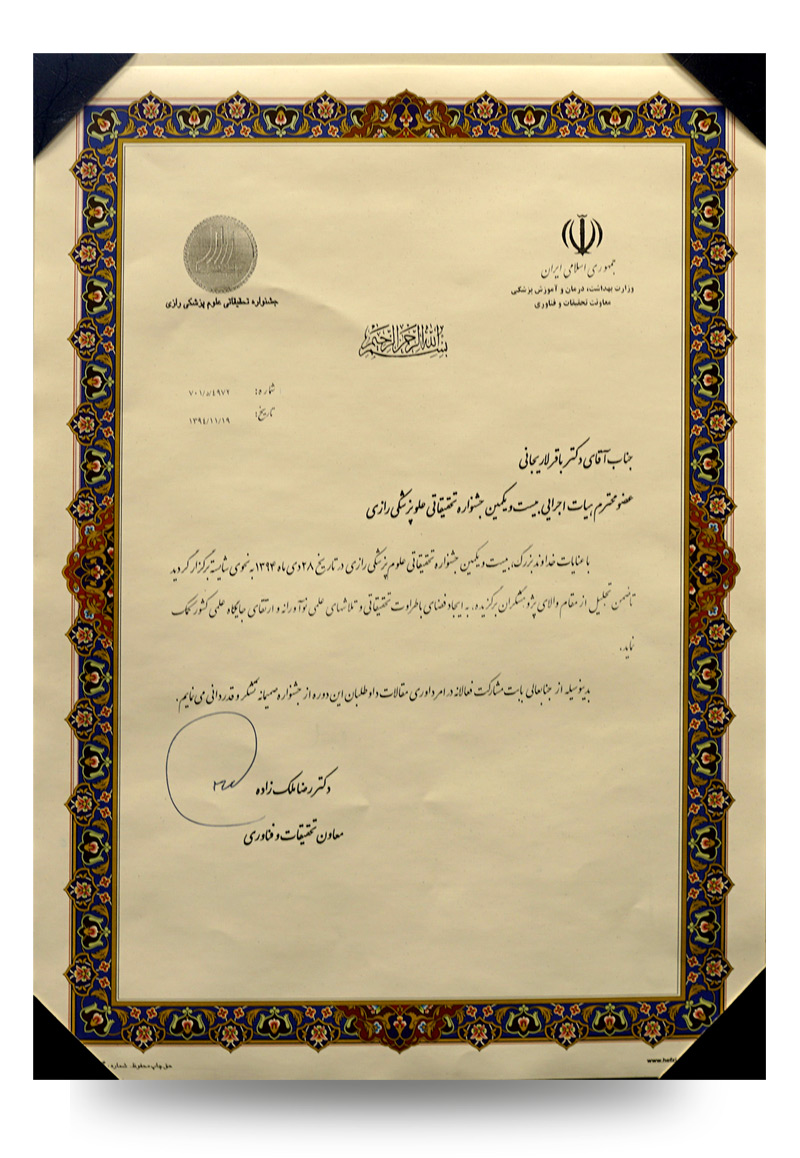 جمهوری اسلامی ایران
وزارت بهداشت، درمان و آموزش پزشکی
معاونت تحقیقات و فناوری
جشنواره تحقیقاتی علوم پزشکی رازی
بسم الله الرحمن الرحیم
شماره: ۷۰۱/۵/۴۹۷۲
تاریخ: ۱۳۹۴/۱۱/۱۹
جناب آقای دکتر باقر لاریجانی
عضو محترم هیات اجرایی بیست و یکمین جشنواره تحقیقاتی علوم پزشکی رازی
با عنایات خداوند بزرگ، بیست و یکمین جشنواره تحقیقاتی علوم پزشکی رازی در تاریخ ۲۸ دی ماه ۱۳۹۴ به نحوی شایسته برگزار گردید
تا ضمن تجلیل از مقام والای پژوهشگران برگزیده، به ایجاد فضای با طراوت تحقیقاتی و تلاشهای علمی نوآورانه و ارتقای جایگاه علمی کشور کمک
نماید.
بدینوسیله از جنابعالی بابت مشارکت فعالانه در امر داوری مقالات داوطلبان این دوره از جشنواره صمیمانه تشکر و قدردانی می نمایم.
دکتر رضا ملک زاده
معاون تحقیقات و فناوری
حق چاپ محفوظ. شماره
www.hefri